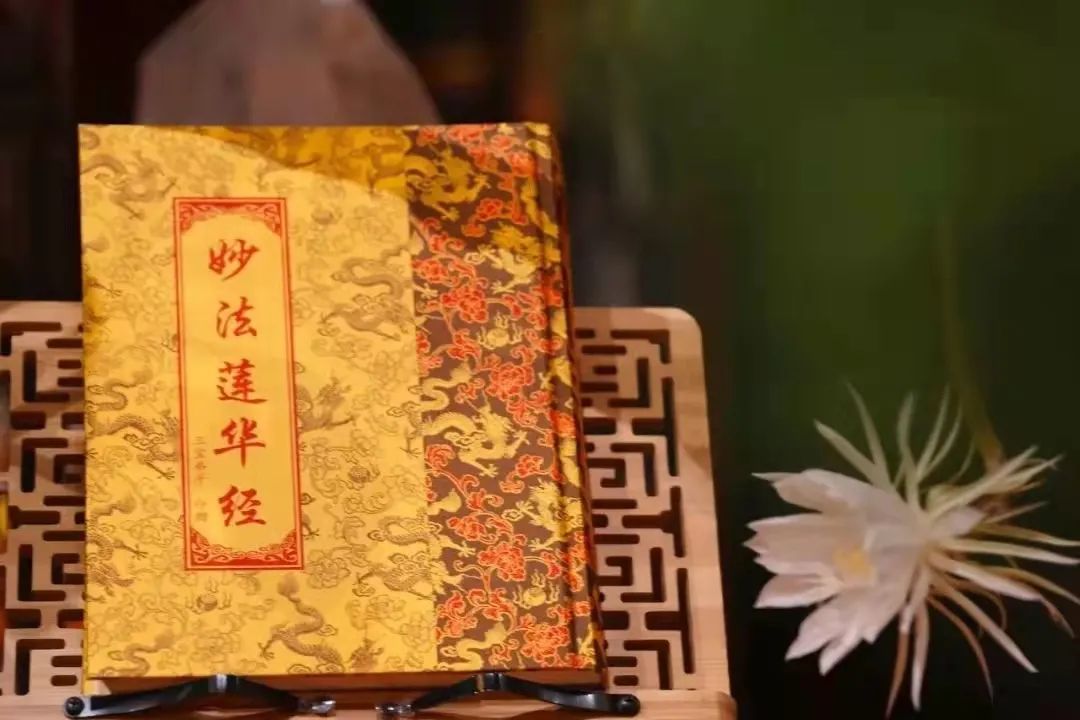 妙法莲华经